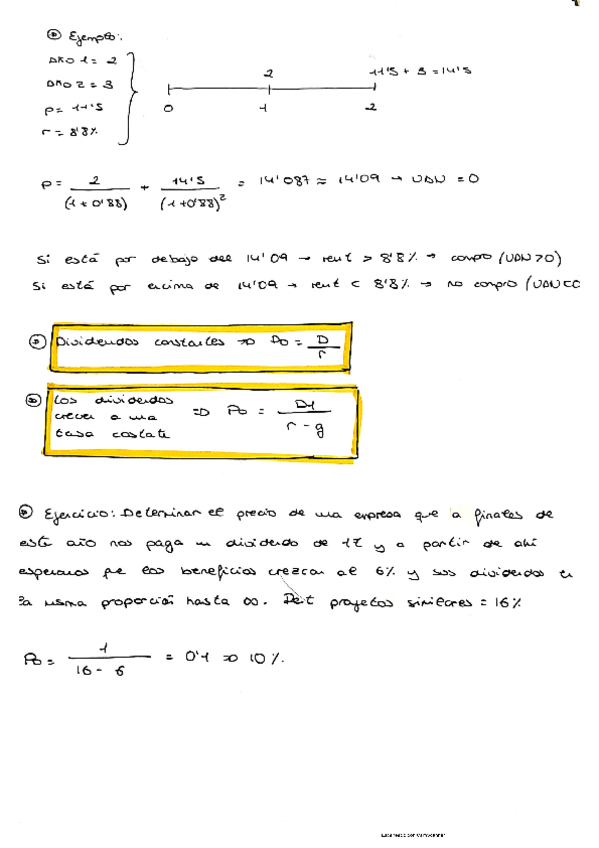 Ejemplo:
Año 1 = 2
Año 2 = 3
P = 11'5
r = 8'8%
2
11'5 + 3 = 14'5
0 1 2
P = 2/(1+0'88) + 14'5/(1+0'88)² = 14'087 ≈ 14'09 → VAN = 0
Si está por debajo del 14'09 → rent > 8'8% → compro (VAN>0)
Si está por encima de 14'09 → rent < 8'8% → no compro (VAN<0
Dividendos constantes ⇒ P0 = D/r
Los dividendos
crecen a una
tasa constate
⇒ P0 = D1/(r - g)
Ejercicio: Determinar el precio de una empresa que a finales de
este año nos paga un dividendo de 1€ y a partir de ahí
esperamos que los beneficios crezcan al 6% y sus dividendos en
la misma proporción hasta ∞. Rent proyectos similares = 16%
P0 = 1/(16 - 6) = 0'1 ⇒ 10%.